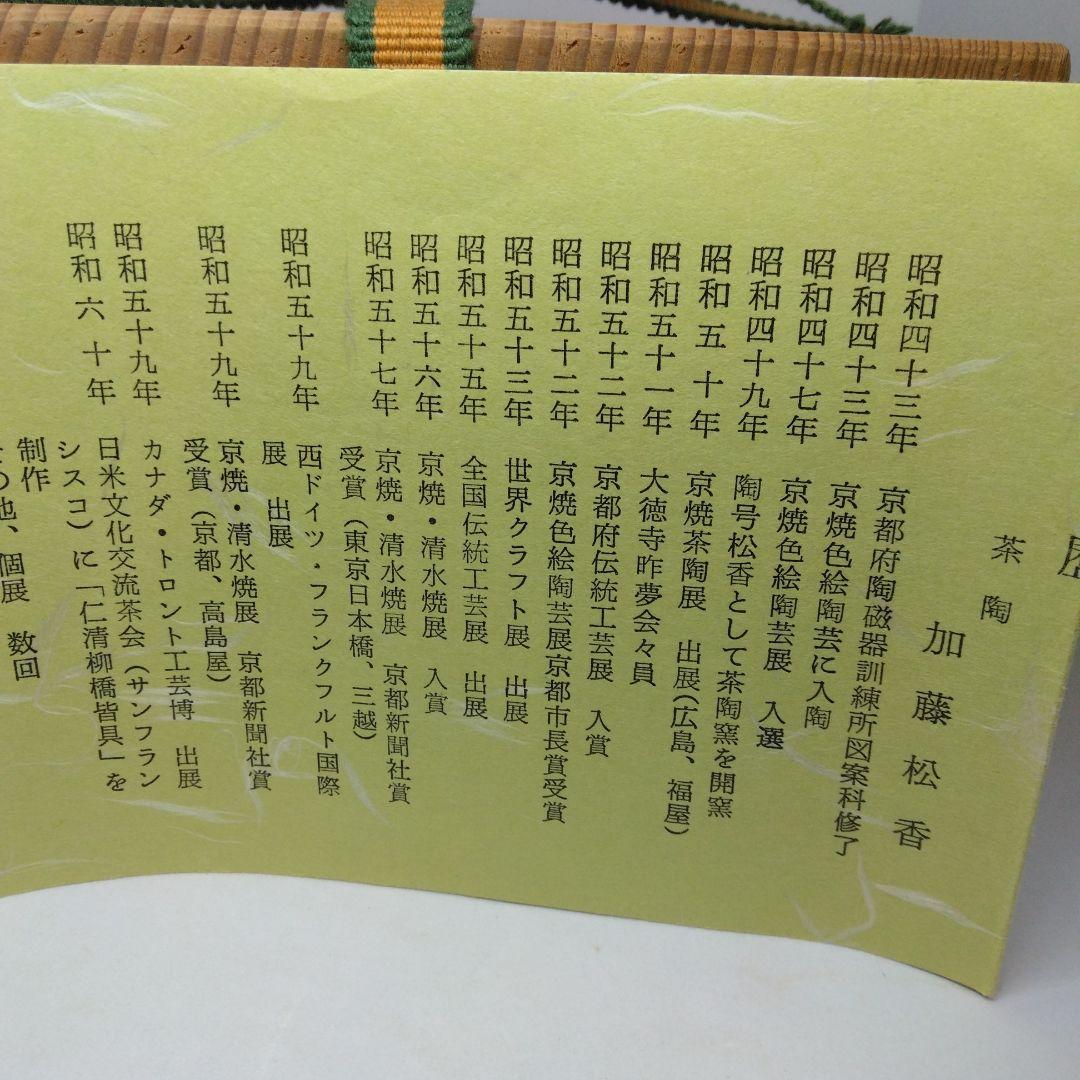 茶陶
加藤松香
昭和四十三年 京都府陶磁器訓練所図案科修了
昭和四十三年 京焼色絵陶芸に入陶
昭和四十七年 京焼色絵陶芸展 入選
昭和四十九年 陶号松香として茶陶窯を開窯
昭和五十年 京焼茶陶展 出展(広島、福屋)
昭和五十一年 大徳寺昨夢会々員
昭和五十二年 京都府伝統工芸展 入賞
昭和五十二年 京焼色絵陶芸展京都市長賞受賞
昭和五十三年 世界クラフト展 出展
昭和五十五年 全国伝統工芸展 出展
昭和五十六年 京焼・清水焼展 入賞
昭和五十七年 京焼・清水焼展 京都新聞社賞
受賞(東京日本橋、三越)
昭和五十九年 西ドイツ・フランクフルト国際
展 出展
昭和五十九年 京焼・清水焼展 京都新聞社賞
受賞(京都、高島屋)
昭和五十九年 カナダ・トロント工芸博 出展
昭和六十年 日米文化交流茶会(サンフラン
シスコ)に「仁清柳橋皆具」を
制作
の他、個展 数回